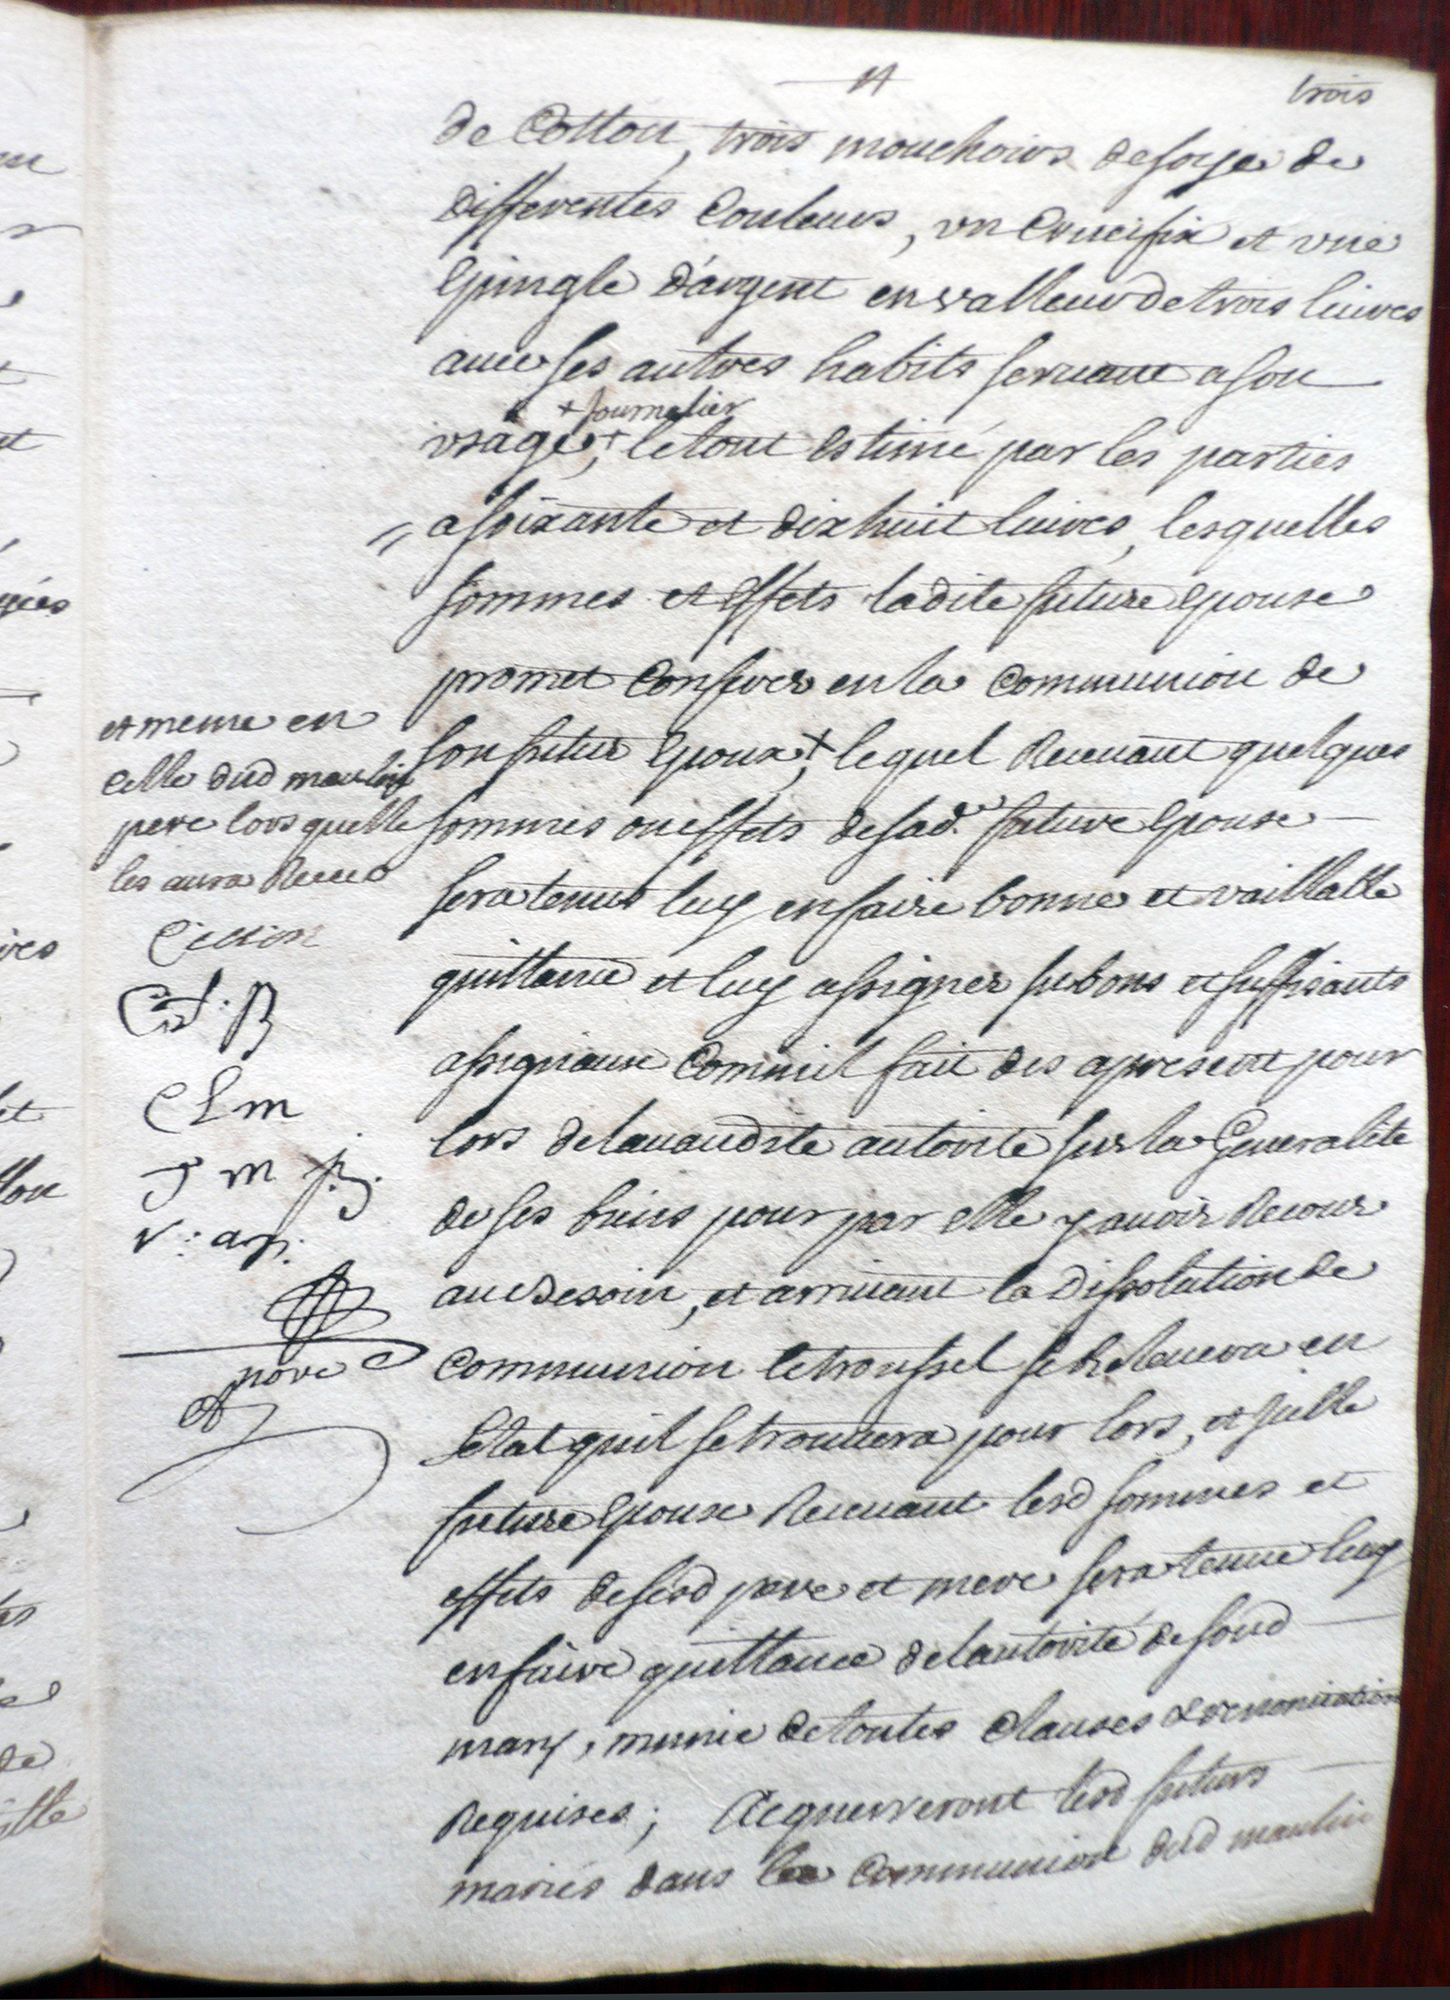 trois
de Cotton, trois mouchoirs de soye de
differentes Couleurs, un Crucifix et une
Epingle d'argent en valleur de trois livres
avec ses autres habits servant a son
+ journalier
usage,+ le tout Estimé par les parties
a soixante et dix huit livres, lesquelles
sommes et Effets ladite future Epouse
promet Conferer en la Communion de
son futur Epoux,+ lequel Recevant quelques
sommes ou effets de sad.e future Epouse
sera tenus luy en faire bonne et vaillable
quittance et luy assigner su bons et suffisants
assignaux Comm'il fait des apresent pour
lors de lavandite autorite sur la Generalite
de ses biens pour par elle y avoir Recour
au Besoin, et arrivant la Dissolution de
Communion le troussel se Relevera en
Letat quil se trouvera pour lors, et sielle
future Epouse Recevant lesd sommes et
effets de sesd pere et mere sera tenue leur
en faire quittance de lautorité de sond
mary, munie de toutes Clauses & renonciation
Requises; Acquerreront lesd futurs
mariés dans la Communion dud maulin
et meme en
Celle dud maulin
pere lors quelle
les aura Receu
C L m
J m
nore